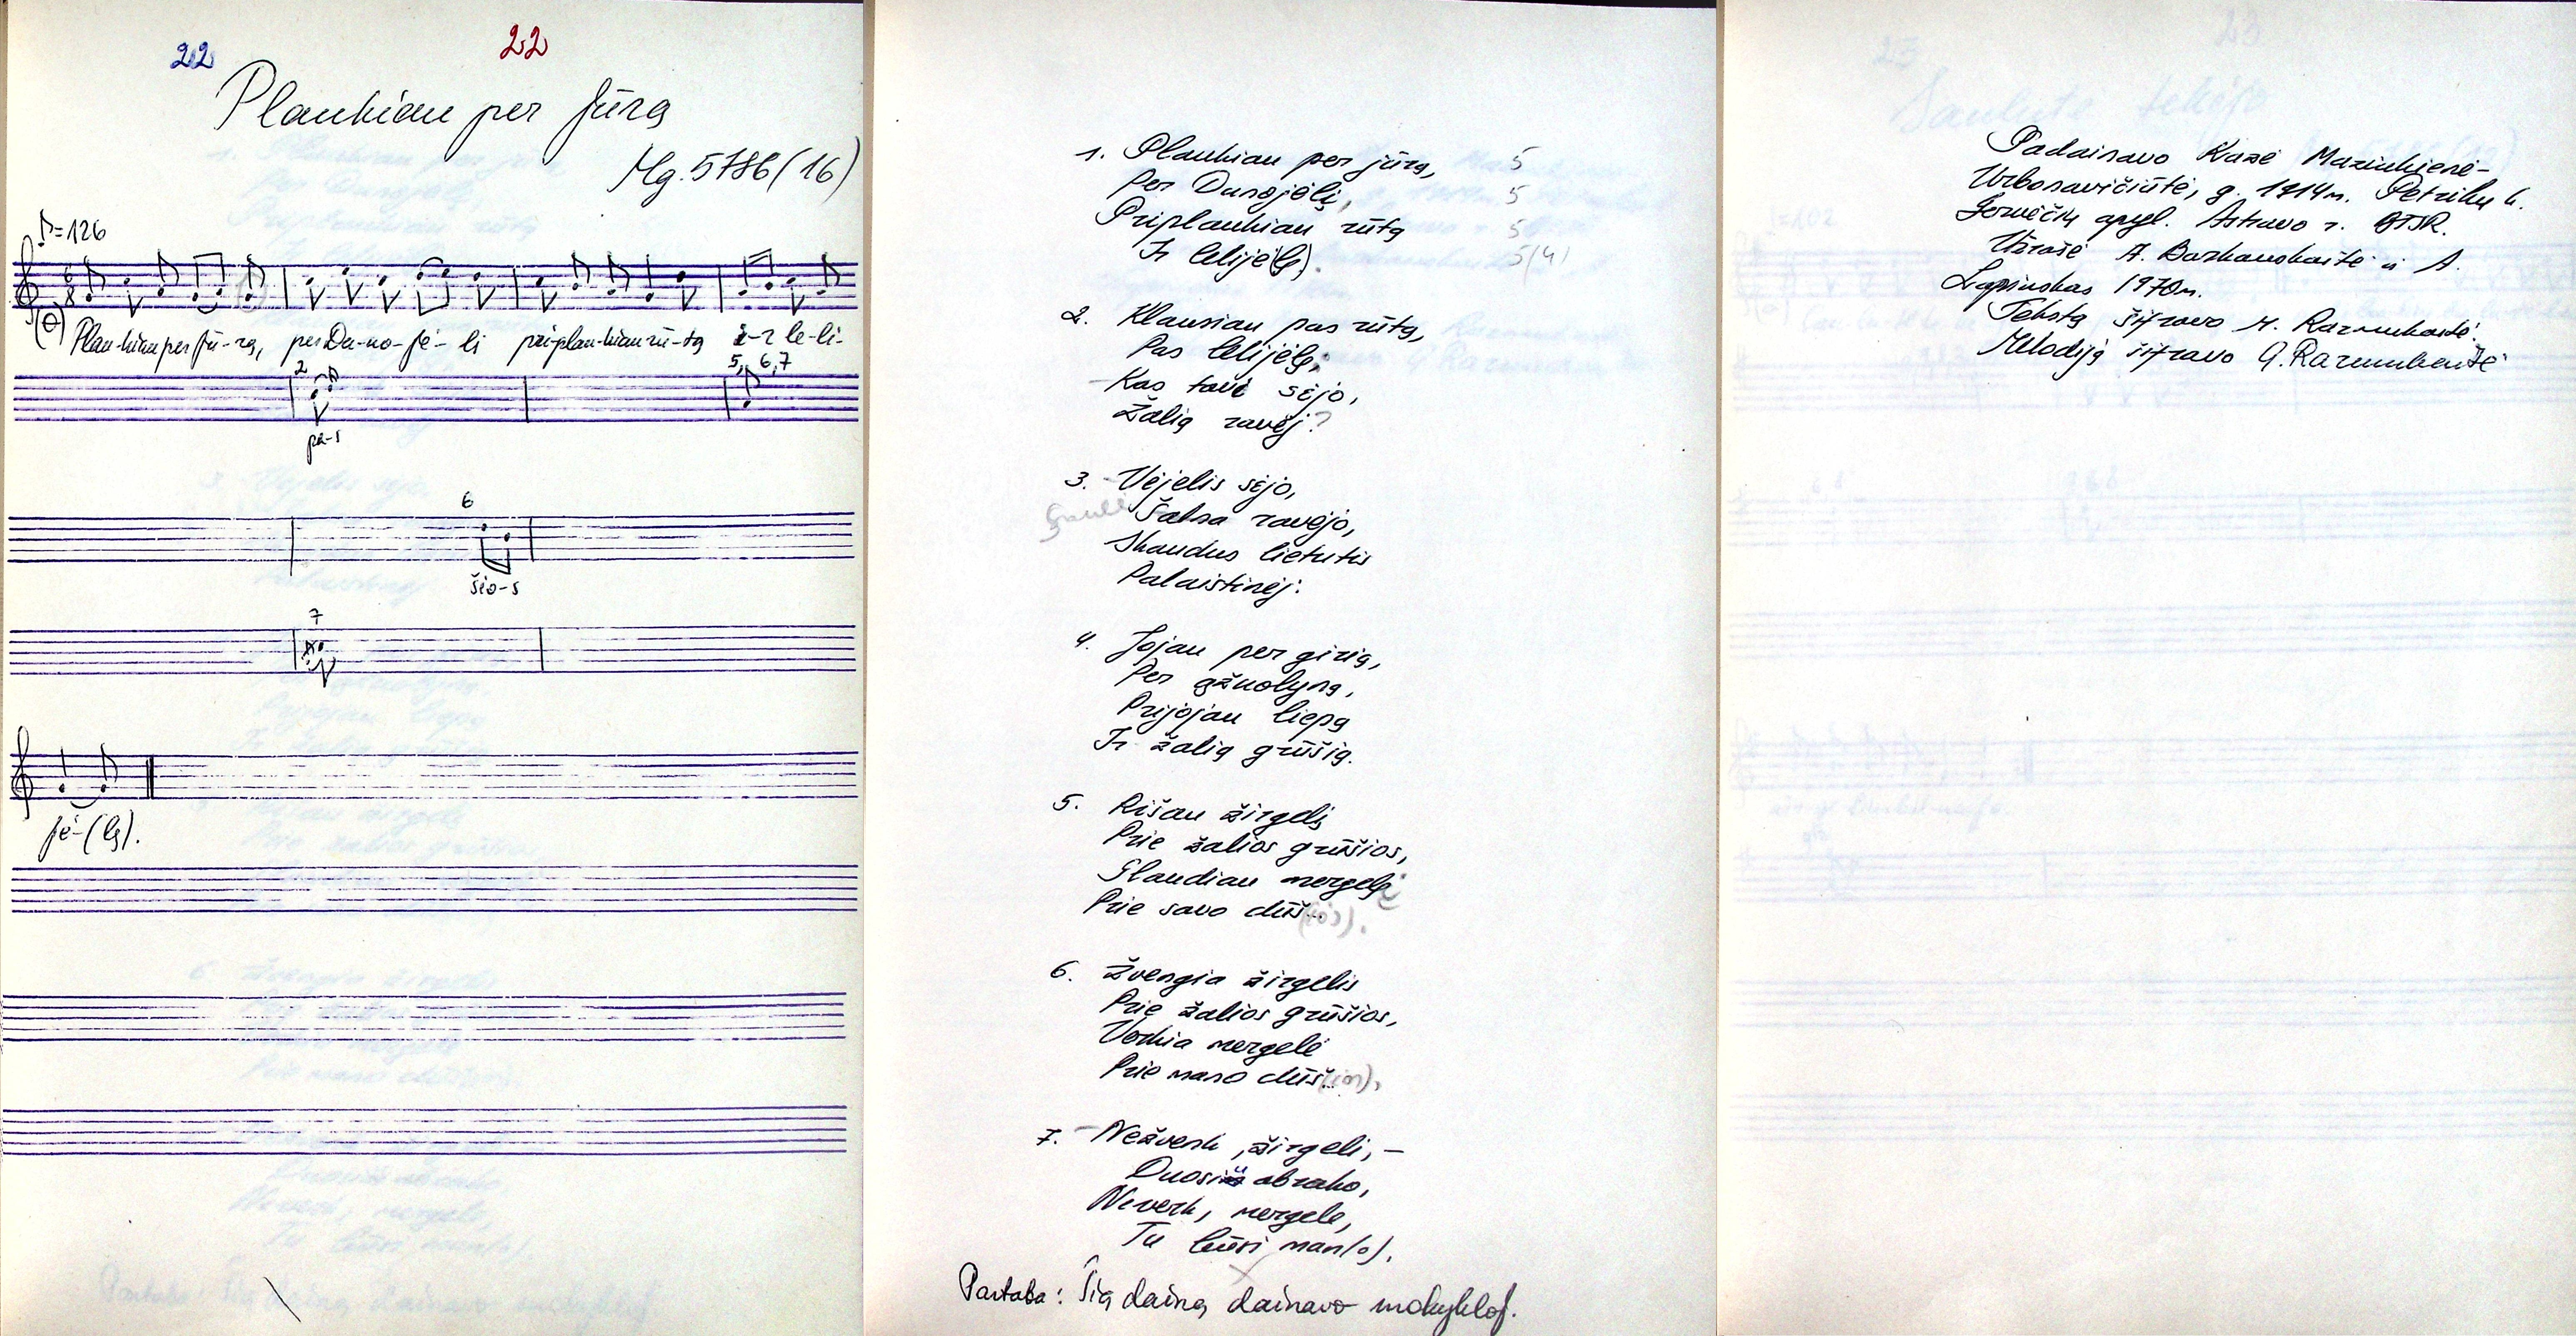 22 22
Plaukiau per jūrą
Mg. 5786 (16)
♪=126
Plau-kiau per jū-rą, per Du-no-jė-lį priplau-kiau rū-tą i-r le-li-
2 5, 6, 7
pa-s
6
šio-s
7
jė-(lę).
1. Plaukiau per jūrą, 5
Per Dunojėlį, 5
Priplaukiau rūtą 5
Ir lelijė(lę). 5(4)
2. Klausiau pas rūtą,
Pas lelijėlę:
- Kas tave sėjo,
Žalią ravėj?
3. - Vėjelis sėjo,
Šalna ravėjo,
Skaudus lietutis
Palaistinėj.
4. Jojau per girią,
Per ąžuolyną,
Prijojau liepą
Ir žalią grūšią.
5. Rišau žirgelį
Prie žalios grūšios,
Glaudžiau mergelę
Prie savo dūš...(ios).
6. Žvengia žirgelis
Prie žalios grūšios,
Verkia mergelė
Prie mano dūš...(ios).
7. - Nežvenk, žirgeli, -
Duosiu abrako,
Neverk, mergele,
Tu būsi man(o).
Pastaba: Šią dainą dainavo mokykloj.
Padainavo Kazė Maziukienė-
Urbonavičiūtė, g. 1914 m. Petrikų k.
Gervėčių apyl. Astravo r. BTSR.
Užrašė A. Barkauskaitė ir A.
Lapinskas 1970 m.
Tekstą šifravo M. Razmukaitė.
Melodiją šifravo G. Razmukaitė